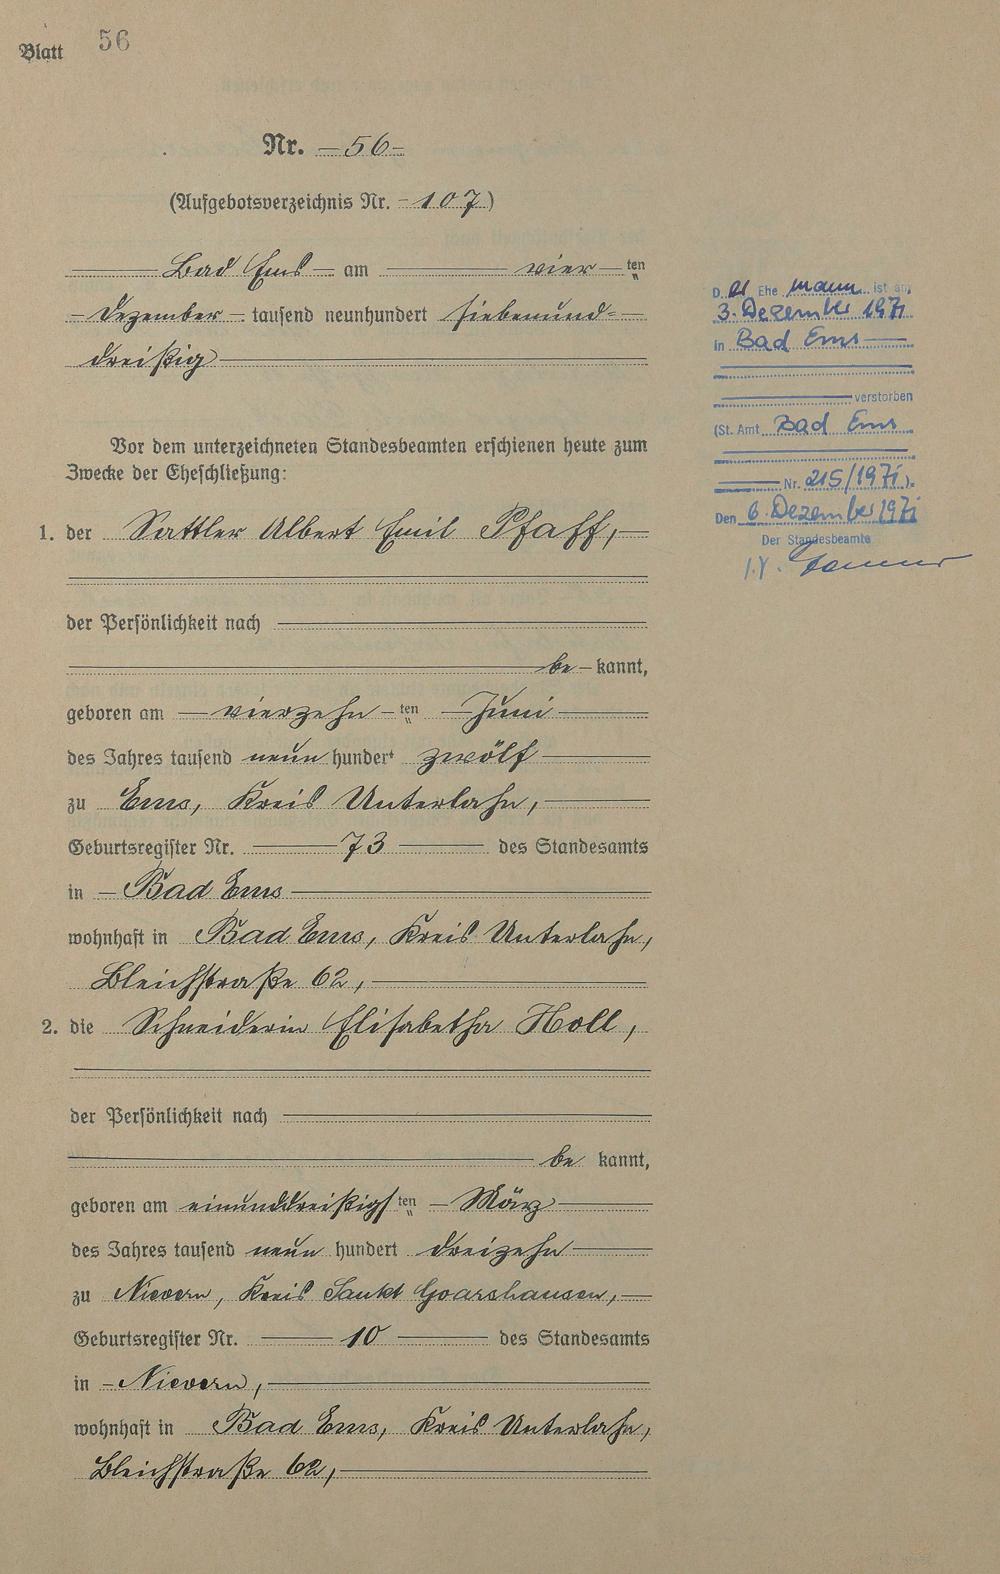 Blatt 56
Nr. 56
(Aufgebotsverzeichnis Nr. 107)
Bad Ems am vier ten
Dezember tausend neunhundert siebenund-
dreißig
Vor dem unterzeichneten Standesbeamten erschienen heute zum
Zwecke der Eheschließung:
1. der Sattler Albert Emil Pfaff,
der Persönlichkeit nach
be kannt,
geboren am vierzehn ten Juni
des Jahres tausend neun hundert zwölf
zu Ems, Kreis Unterlahn,
Geburtsregister Nr. 73 des Standesamts
in Bad Ems
wohnhaft in Bad Ems, Kreis Unterlahn,
Bleichstraße 62,
2. die Schneiderin Elisabetha Holl,
der Persönlichkeit nach
be kannt,
geboren am einunddreißigs ten März
des Jahres tausend neun hundert dreizehn
zu Nievern, Kreis Sankt Goarshausen,
Geburtsregister Nr. 10 des Standesamts
in Nievern,
wohnhaft in Bad Ems, Kreis Unterlahn,
Bleichstraße 62,
D er Ehe mann ist am
3. Dezember 1971
in Bad Ems
verstorben
(St. Amt Bad Ems
Nr. 215/1971).
Den 6. Dezember 1971
Der Standesbeamte